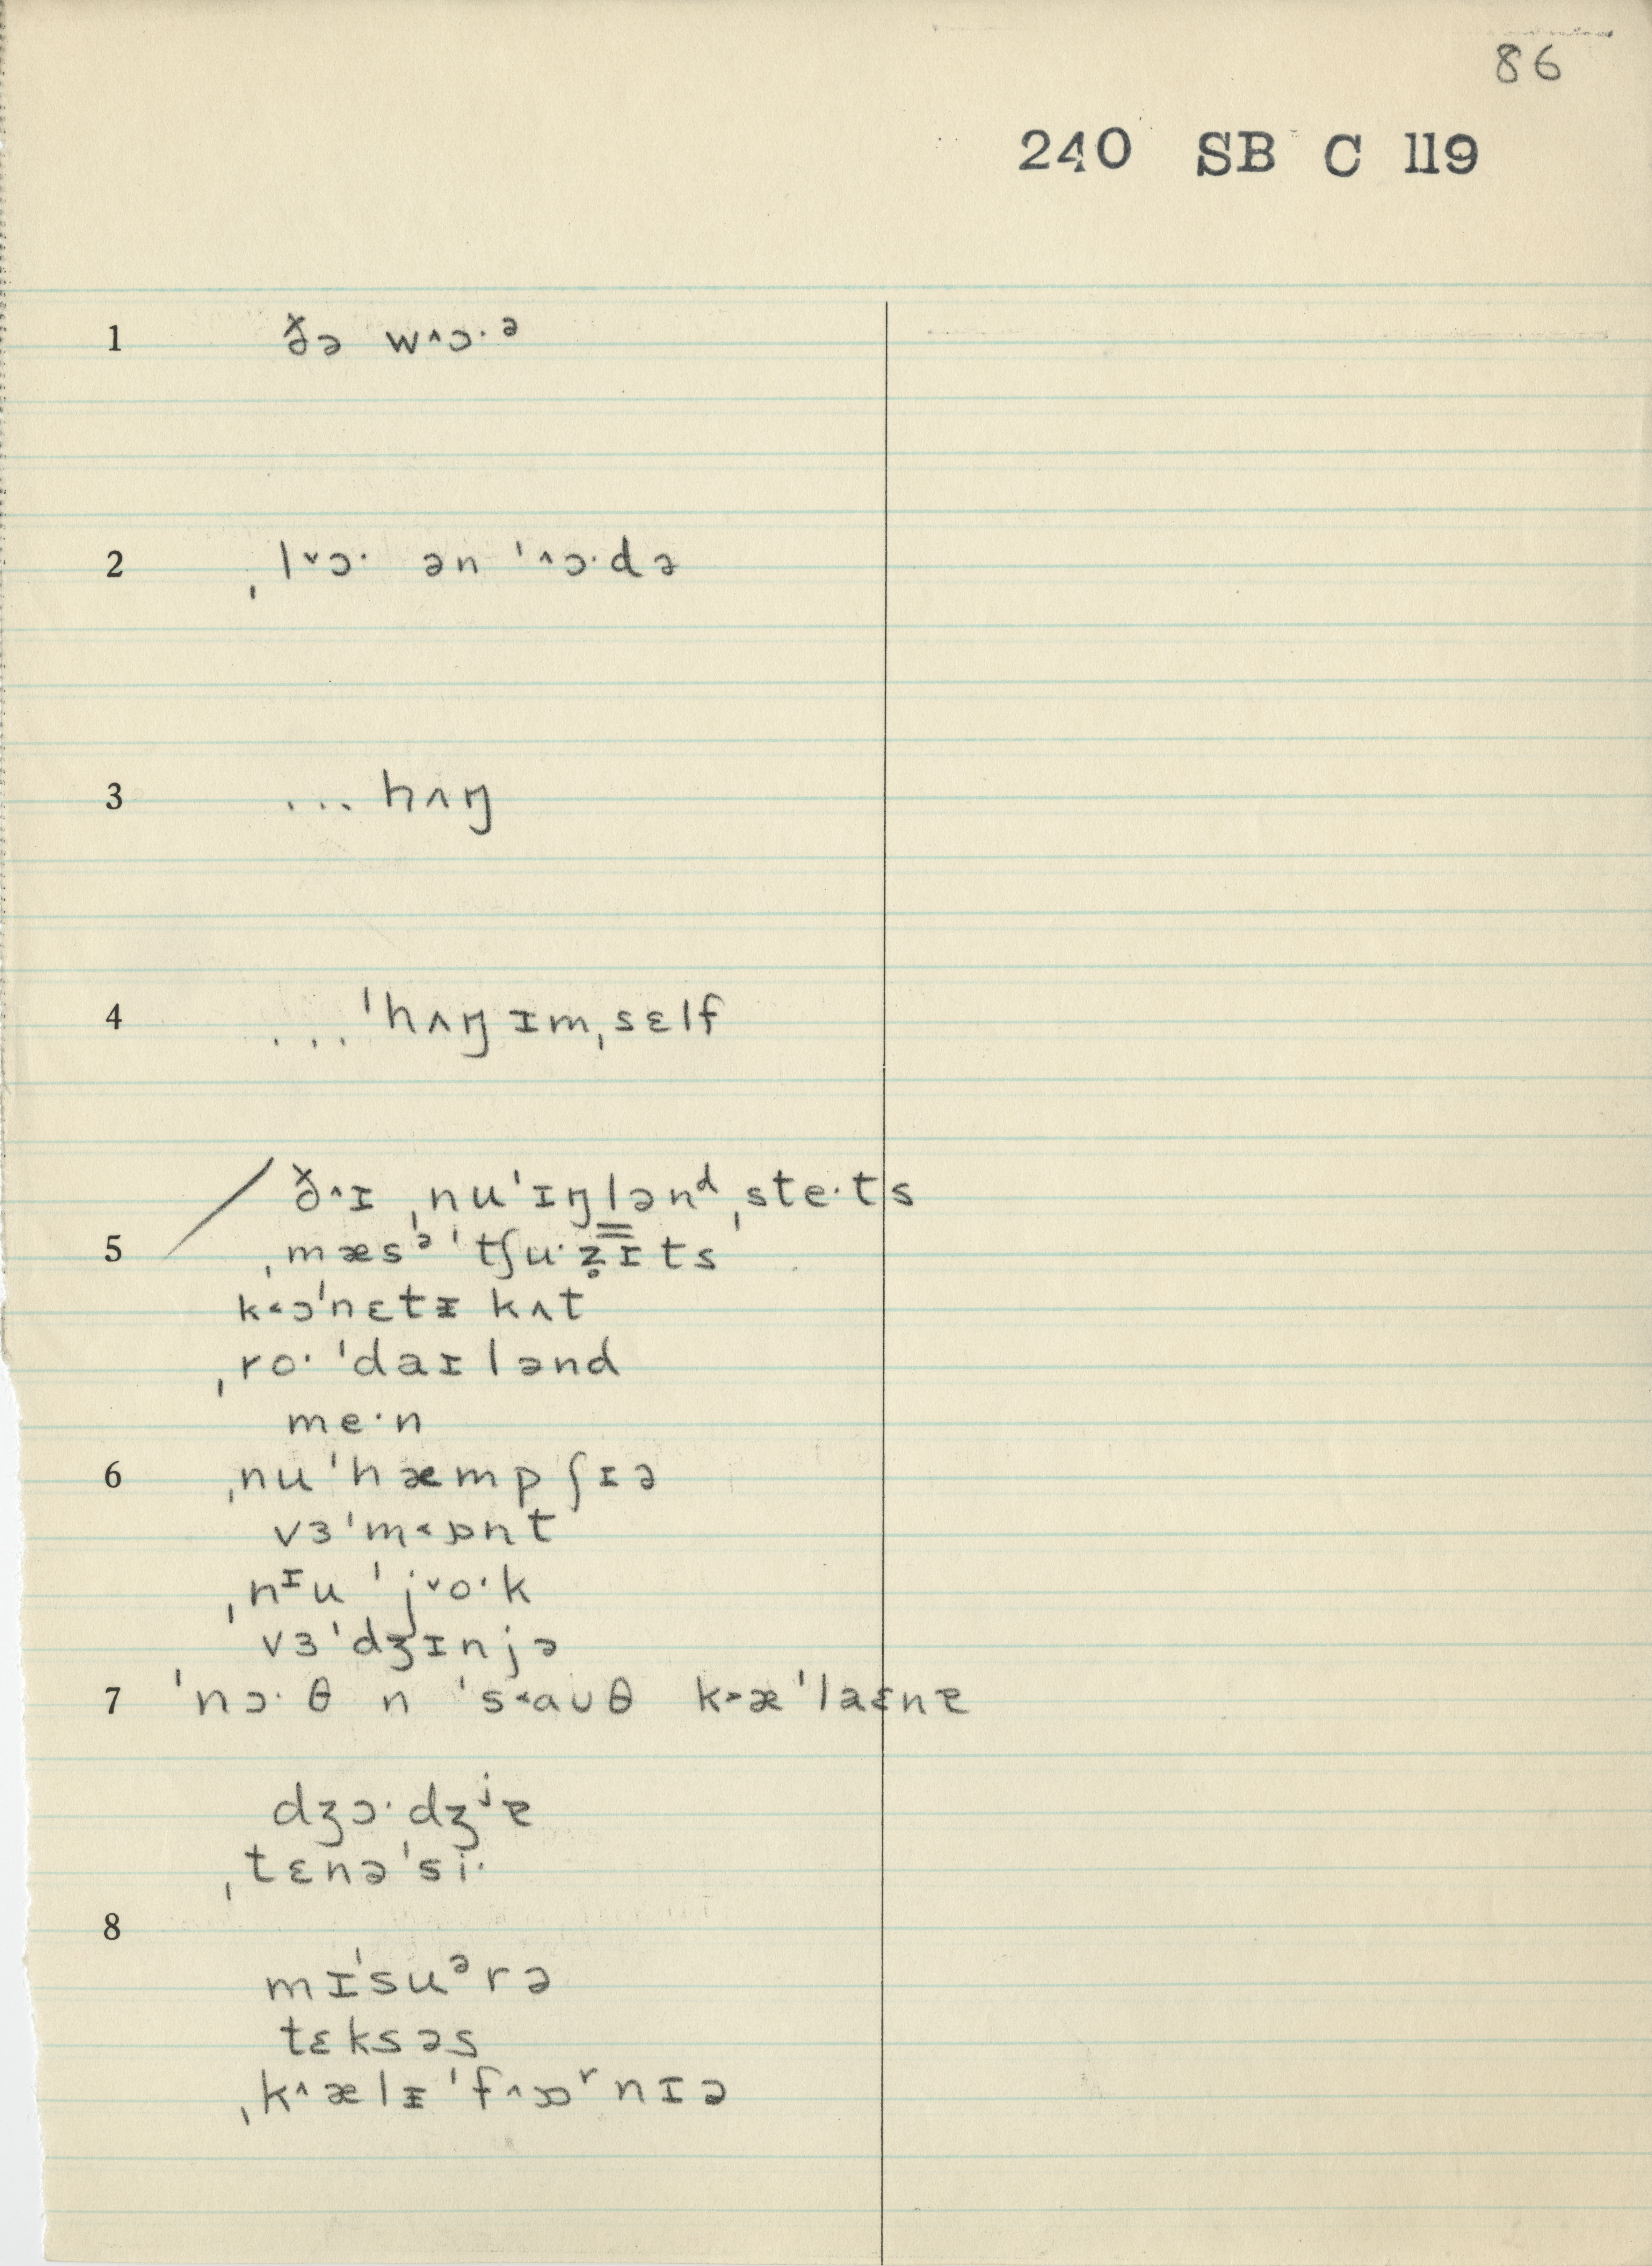 86
240 SB C 119
1 ðə w˄ɔ·ᵊ
2 ˌl˅ɔ· ən ˈ˄ɔ·də
3 ... hʌŋ
4 ... ˈhʌŋ ɪmˌsɛlf
ð˄ɪ ˌnuˈɪŋlənᵈˌste·ts
5 ˌmæsᵊˈtʃu·z̥ɪts
k˂ɔˈnɛtᵻkʌt
ˌro·ˈdaɪlənd
me·n
6 ˌnuˈhæmpʃɪə
vɜˈm˂ɒnt
ˌnᶦuˈj˅o·k
vɜˈdʒɪnjə
7 ˈnɔ·θ n ˈs˂auθ k˃æˈlaɛnɐ
dʒɔ·dʒʲɐ
ˌtɛnəˈsi·
8
mɪˈsuᵊrə
tɛksəs
ˌk˄ælᵻˈf˄ɒʳnɪə